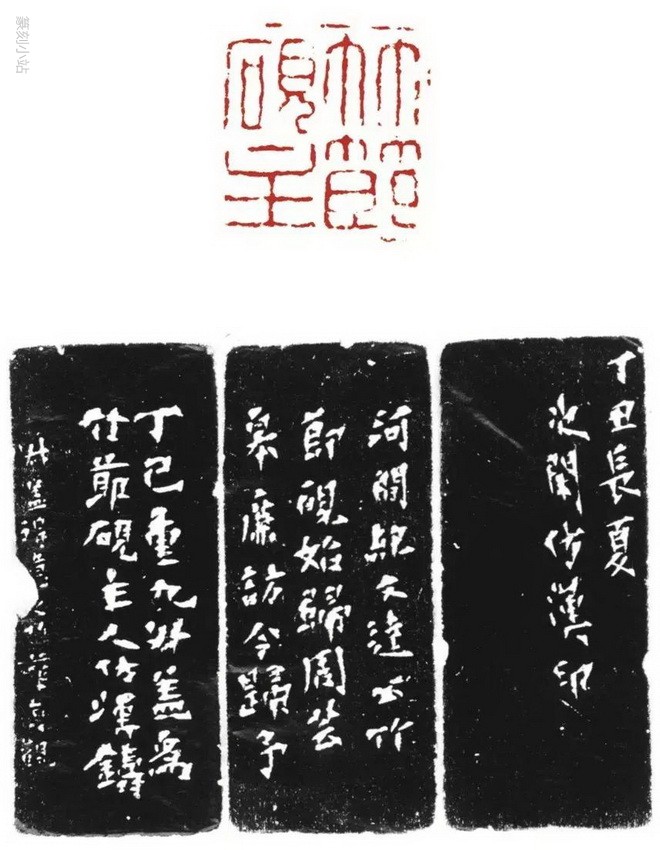 篆刻小站
竹節
硯主
丁丑長夏
次閑仿漢印
河間紀文達公竹
節硯始歸周芸
皋廉訪今歸予
丁巳重九叔蓋為
竹節硯主人仿渾鑄